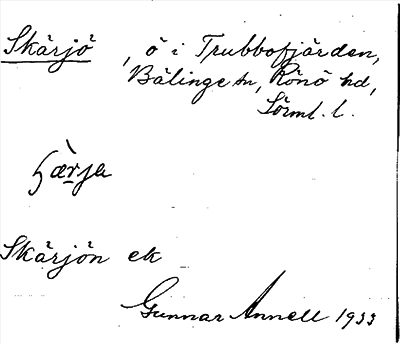 Skärjö, ö i Trubbofjärden,
Bälinge sn, Rönö hd,
Sörml. l.
ʃæ̀rja
Skärjön ek
Gunnar Annell 1933